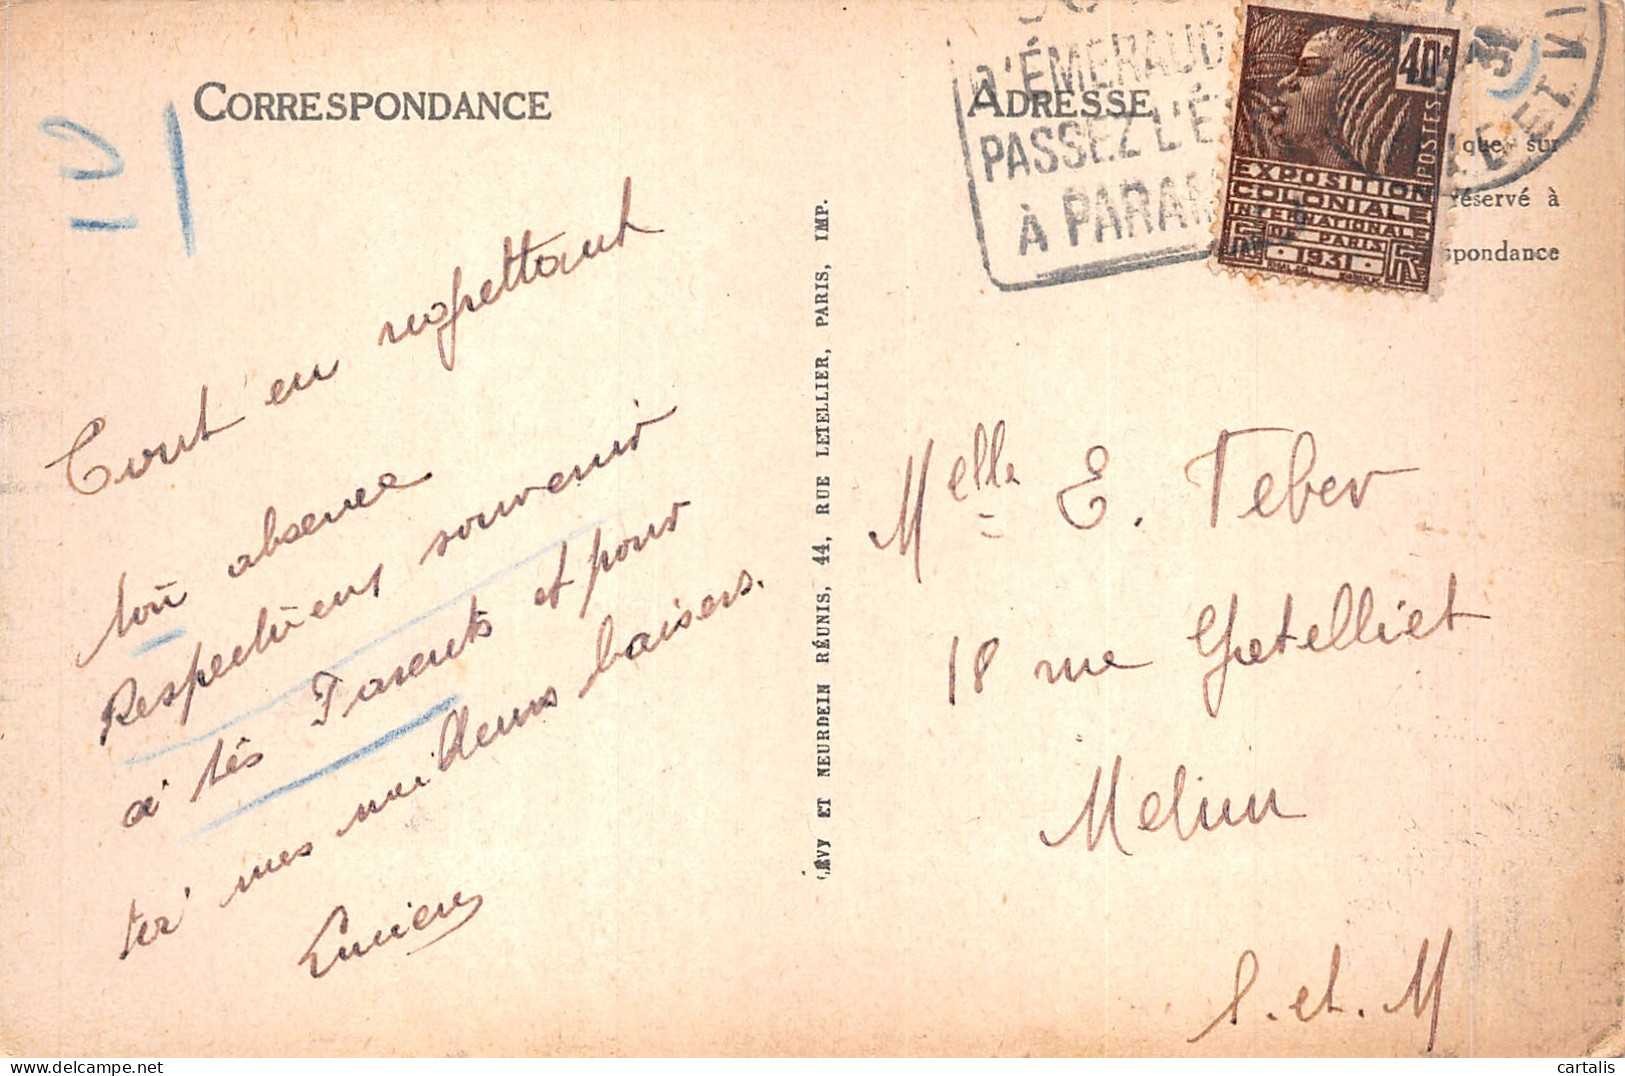 CORRESPONDANCE
Tout en regrettant
ton absence
Respectueux souvenir
à tes Parents et pour
toi mes meilleurs baisers.
Lucien
LÉVY ET NEURDEIN RÉUNIS, 44, RUE LETELLIER, PARIS, IMP.
D'ÉMERAUD
PASSEZ L'É
À PARAM
ADRESSE
40c
POSTES
EXPOSITION
COLONIALE
INTERNATIONALE
DE PARIS
1931
RF
31
ILLE ET VI
que sur
réservé à
spondance
Melle E. Teber
18 rue Gatelliet
Melun
S. et. M
cartalis